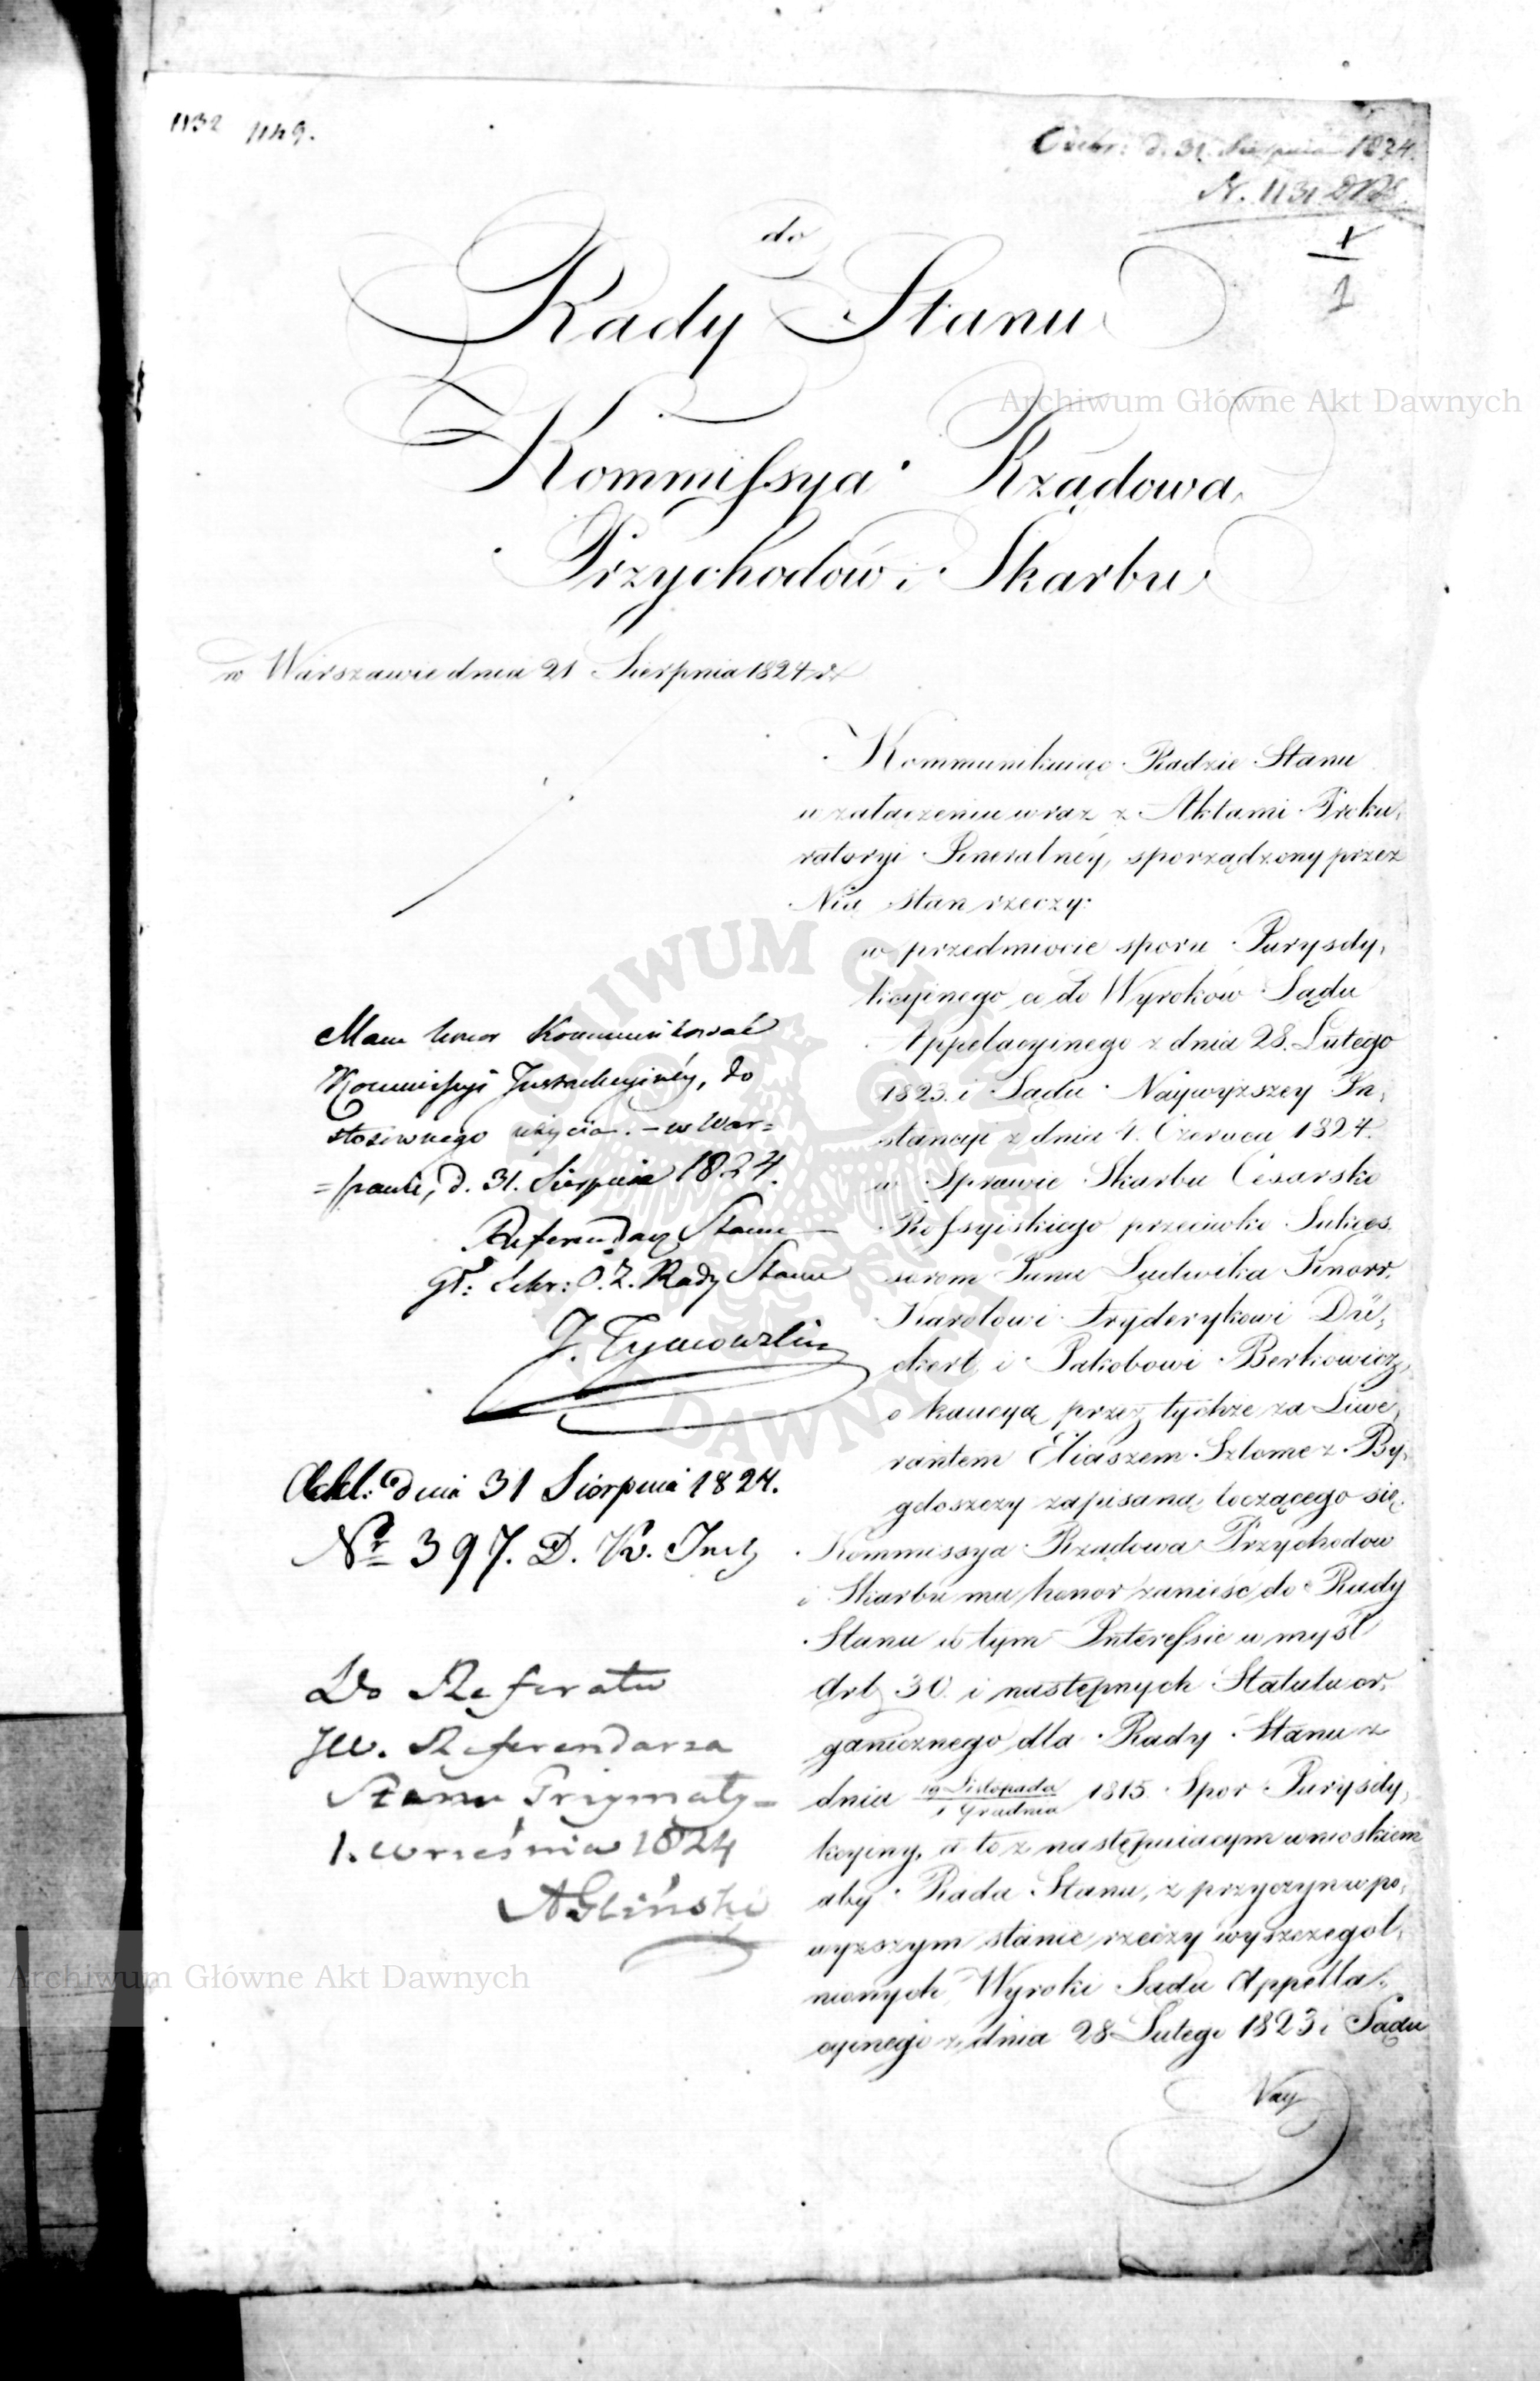 1132 1149.
Odebr: d. 31. Sierpnia 1824.
N. 1131
1
1
do
Rady Stanu
Archiwum Główne Akt Dawnych
Kommissya Rządowa
Przychodów i Skarbu
w Warszawie dnia 21 Sierpnia 1824 r.
Kommunikuiąc Radzie Stanu
w załączeniu wraz z Aktami Proku,
ratoryi Jeneralnéy, sporządzony przez
Nią stan rzeczy:
w przedmiocie sporu Jurysdy,
kcyinego co do Wyroków Sądu
Appelacyinego z dnia 28. Lutego
1823. i Sądu Naywyższey In,
stancyi z dnia 4. Czerwca 1824.
w Sprawie Skarbu Cesarsko
Rossyiskiego przeciwko Sukces,
sorom Pana Ludwika Knorr,
Karolowi Fryderykowi Dü,
ckert, i Jakobowi Berkowicz,
o kaucyą przez tychże za Liwe,
rantem Eliaszem Szlome z By,
gdoszczy zapisaną toczącego się.
Kommissya Rządowa Przychodow
i Skarbu ma honor zanieść do Rady
Stanu w tym Interessie w myśl
Art. 30. i następnych Statutu or,
ganicznego dla Rady Stanu z
dnia 19 Listopada / 1 Grudnia 1815. Spor Jurysdy,
kcyiny, a to z następuiącym wnioskiem
aby Rada Stanu, z przyczyn w po,
wyższym stanie rzeczy wyszczegól,
nionych, Wyroki Sądu Appella,
cyinego z dnia 28 Lutego 1823 i Sądu
Nay
Mam honor Kommunikować
Kommissyi Instrukcyinéy, do
stosownego użycia. – w War=
=szawie, d. 31. Sierpnia 1824.
Referendarz Stanu
Gł: Sekr: O. Z. Rady Stanu
J. Tymowski
Odebr: dnia 31 Sierpnia 1824.
Nr 397. D. K. Inst.
Do Referatu
JW. Referendarza
Stanu
1. września 1824
AGliński
ARCHIWUM GŁÓWNE AKT DAWNYCH
Archiwum Główne Akt Dawnych